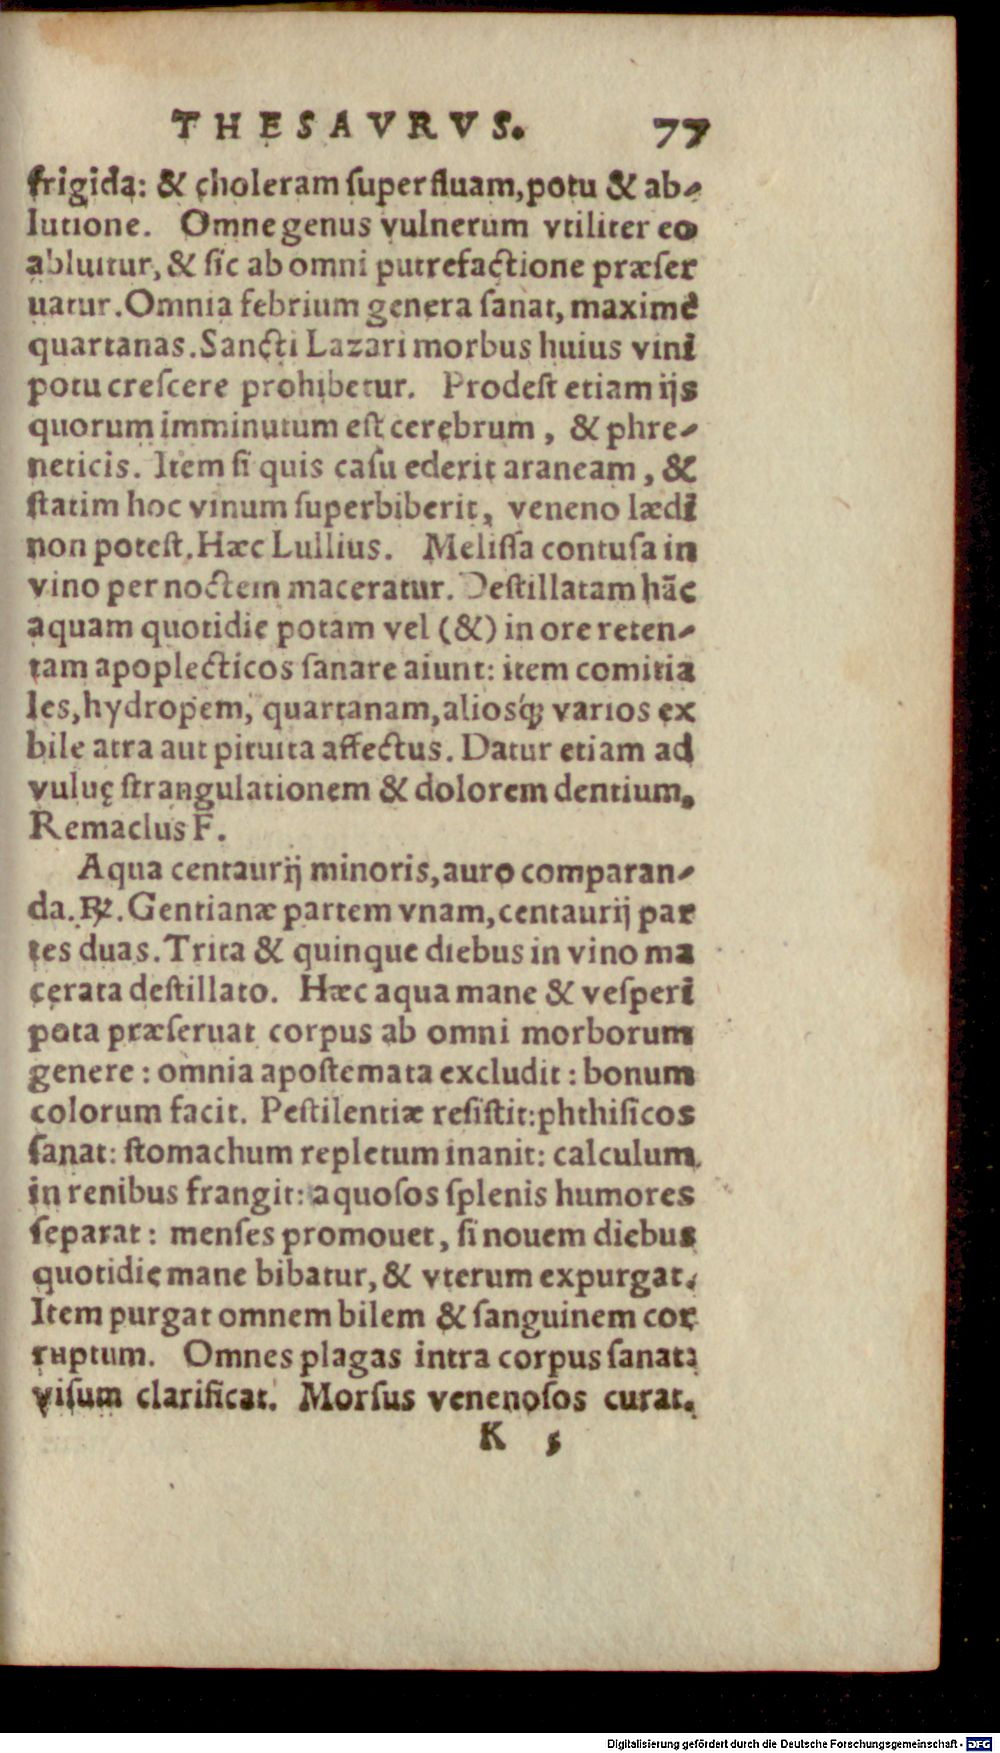 THESAVRVS. 77
frigida: & choleram ſuperfluam, potu & ab-
lutione. Omne genus vulnerum vtiliter eo
abluitur, & ſic ab omni putrefactione præſer
uatur. Omnia febrium genera ſanat, maximè
quartanas. Sancti Lazari morbus huius vini
potu creſcere prohibetur. Prodeſt etiam ijs
quorum imminutum eſt cerebrum, & phre-
neticis. Item ſi quis caſu ederit araneam, &
ſtatim hoc vinum ſuperbiberit, veneno lædi
non poteſt. Hæc Lullius. Meliſſa contuſa in
vino per noctem maceratur. Deſtillatam hāc
aquam quotidie potam vel (&) in ore reten-
tam apoplecticos ſanare aiunt: item comitia
les, hydropem, quartanam, aliosq́; varios ex
bile atra aut pituita affectus. Datur etiam ad
vuluę ſtrangulationem & dolorem dentium.
Remaclus F.
Aqua centaurij minoris, auro comparan-
da. ℞. Gentianæ partem vnam, centaurij par
tes duas. Trita & quinque diebus in vino ma
cerata deſtillato. Hæc aqua mane & veſperi
pota præſeruat corpus ab omni morborum
genere: omnia apoſtemata excludit: bonum
colorum facit. Peſtilentiæ reſiſtit: phthiſicos
ſanat: ſtomachum repletum inanit: calculum
in renibus frangit: aquoſos ſplenis humores
ſeparat: menſes promouet, ſi nouem diebus
quotidie mane bibatur, & vterum expurgat.
Item purgat omnem bilem & ſanguinem cor
ruptum. Omnes plagas intra corpus ſanat:
viſum clarificat. Morſus venenoſos curat.
K 5
Digitalisierung gefördert durch die Deutsche Forschungsgemeinschaft - DFG